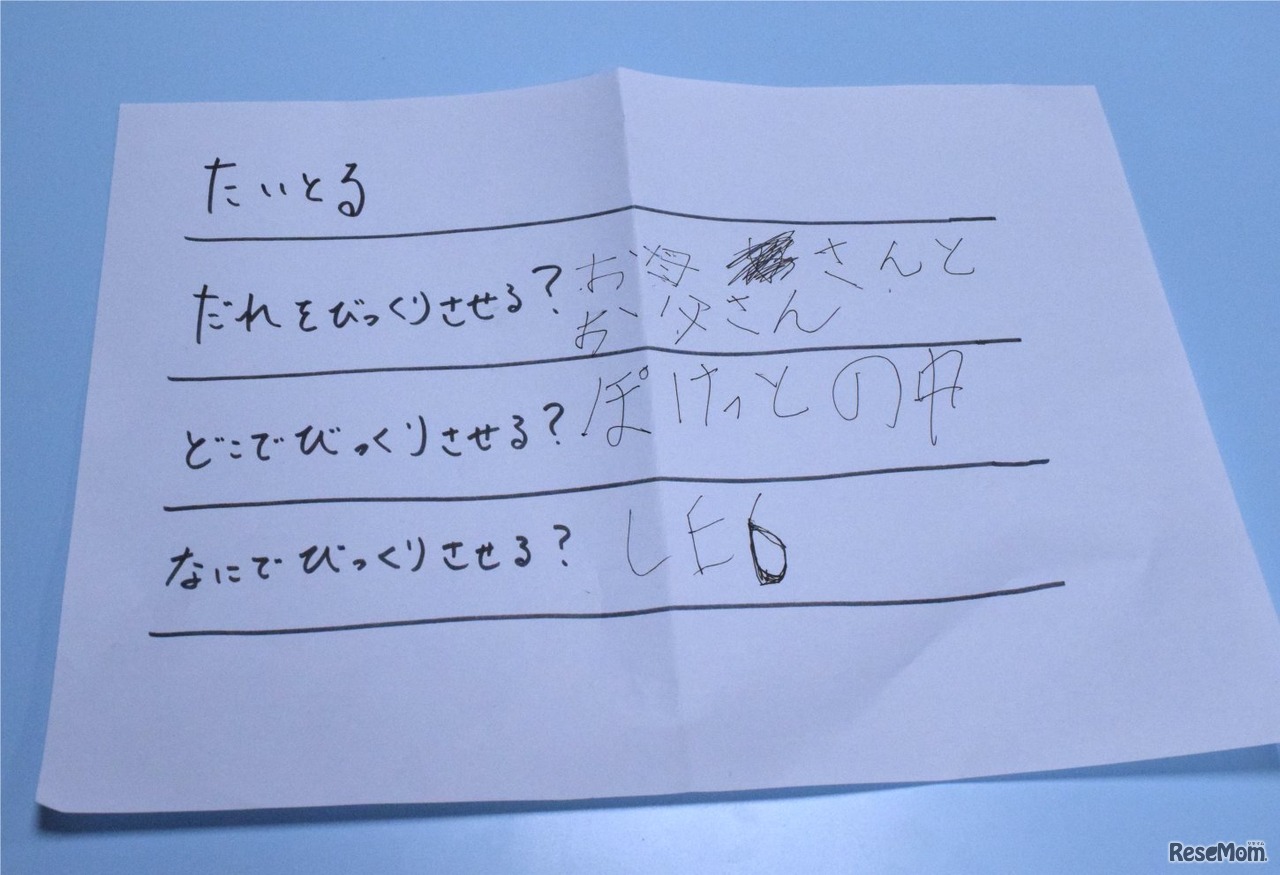 たいとる
だれをびっくりさせる? お母さんと
お父さん
どこでびっくりさせる? ぽけっとの中
なにでびっくりさせる? LED
ReseMom
リセマム